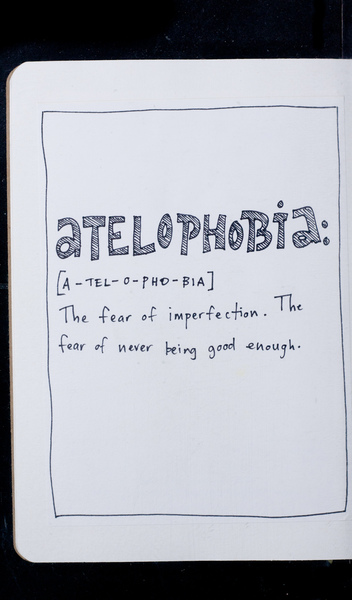 aTELOPHOBia:
[A-TEL-O-PHO-BIA]
The fear of imperfection. The
fear of never being good enough.